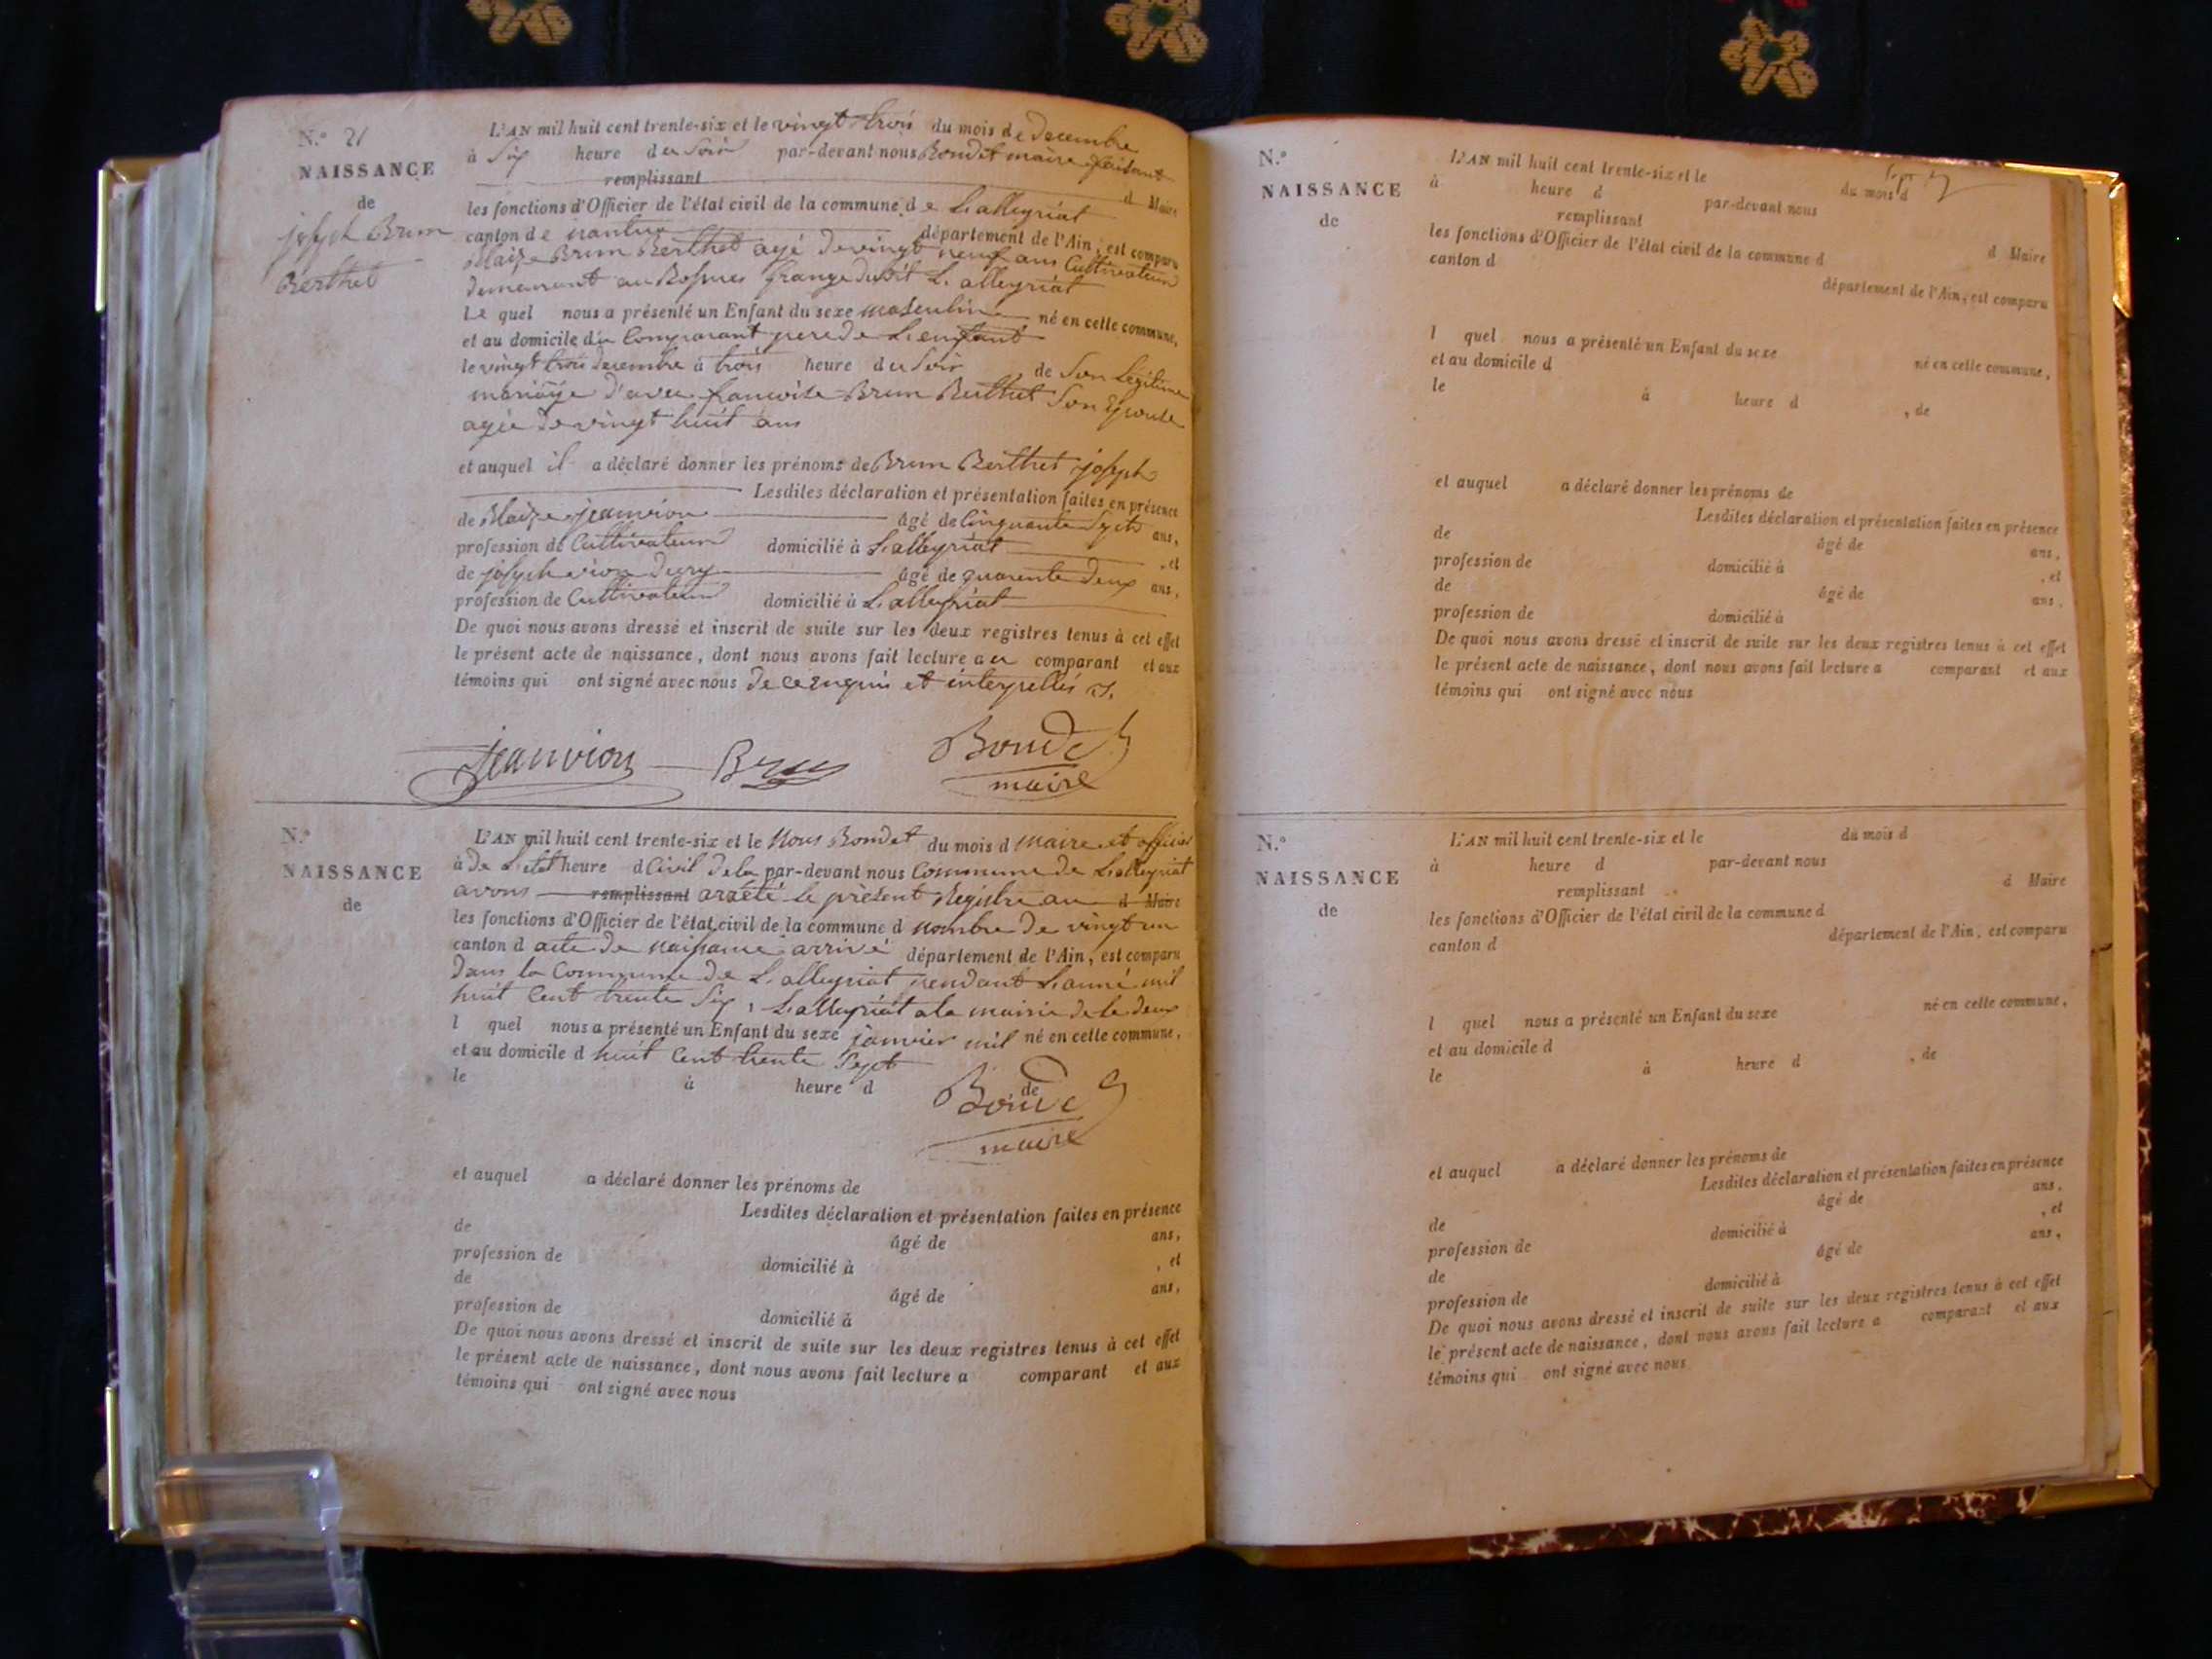 N.° 21
NAISSANCE
de
joseph Brun
Berthet
L'AN mil huit cent trente-six et le vingt trois du mois de decembre
à Six heure du Soir par-devant nous Bondet maire faisant
remplissant d Maire
les fonctions d'Officier de l'état civil de la commune de L'alleyriat
canton de nantua département de l'Ain, est comparu
Blaize Brun Berthet agé de vingt neuf ans Cultivateur
demeurant au grange dudit L'alleyriat
Le quel nous a présenté un Enfant du sexe masculin né en cette commune,
et au domicile du Comparant pere de L'enfant
le vingt trois decembre à trois heure du Soir de Son Légitime
mariage d'avec francoise Brun Berthet Son Epouse
agée de vingt huit ans
et auquel il a déclaré donner les prénoms de Brun Berthet joseph
Lesdites déclaration et présentation faites en présence
de Blaize jeanvion âgé de Cinquante Sept ans,
profession de Cultivateur domicilié à L'alleyriat , et
de joseph vion Dury âgé de quarente deux ans,
profession de Cultivateur domicilié à L'alleyriat
De quoi nous avons dressé et inscrit de suite sur les deux registres tenus à cet effet
le présent acte de naissance, dont nous avons fait lecture au comparant et aux
témoins qui ont signé avec nous de ce enquis et interpellés
jeanvion Brun Bondet
maire
N.°
NAISSANCE
de
L'AN mil huit cent trente-six et le Nous Bondet du mois d maire et officier
à de L'etat heure d Civil de la par-devant nous Commune de L'alleyriat
avons remplissant arrêté le présent Registre au d Maire
les fonctions d'Officier de l'état civil de la commune d nombre de vingt un
canton d acte de naissance arrivé département de l'Ain, est comparu
dans la Commune de L'alleyriat pendant L'anné mil
huit Cent trente Six, L'alleyriat a la mairie le deux
l quel nous a présenté un Enfant du sexe janvier mil né en cette commune,
et au domicile d huit Cent trente Sept
le à heure d de
Bondet
maire
et auquel a déclaré donner les prénoms de
Lesdites déclaration et présentation faites en présence
de âgé de ans,
profession de domicilié à , et
de âgé de ans,
profession de domicilié à
De quoi nous avons dressé et inscrit de suite sur les deux registres tenus à cet effet
le présent acte de naissance, dont nous avons fait lecture a comparant et aux
témoins qui ont signé avec nous
N.°
NAISSANCE
de
L'AN mil huit cent trente-six et le du mois d
à heure d par-devant nous
remplissant d Maire
les fonctions d'Officier de l'état civil de la commune d
canton d département de l'Ain, est comparu
l quel nous a présenté un Enfant du sexe né en cette commune,
et au domicile d
le à heure d , de
et auquel a déclaré donner les prénoms de
Lesdites déclaration et présentation faites en présence
de âgé de ans,
profession de domicilié à , et
de âgé de ans,
profession de domicilié à
De quoi nous avons dressé et inscrit de suite sur les deux registres tenus à cet effet
le présent acte de naissance, dont nous avons fait lecture a comparant et aux
témoins qui ont signé avec nous
N.°
NAISSANCE
de
L'AN mil huit cent trente-six et le du mois d
à heure d par-devant nous
remplissant d Maire
les fonctions d'Officier de l'état civil de la commune d
canton d département de l'Ain, est comparu
l quel nous a présenté un Enfant du sexe né en cette commune,
et au domicile d
le à heure d , de
et auquel a déclaré donner les prénoms de
Lesdites déclaration et présentation faites en présence
de âgé de ans,
profession de domicilié à , et
de âgé de ans,
profession de domicilié à
De quoi nous avons dressé et inscrit de suite sur les deux registres tenus à cet effet
le présent acte de naissance, dont nous avons fait lecture a comparant et aux
témoins qui ont signé avec nous